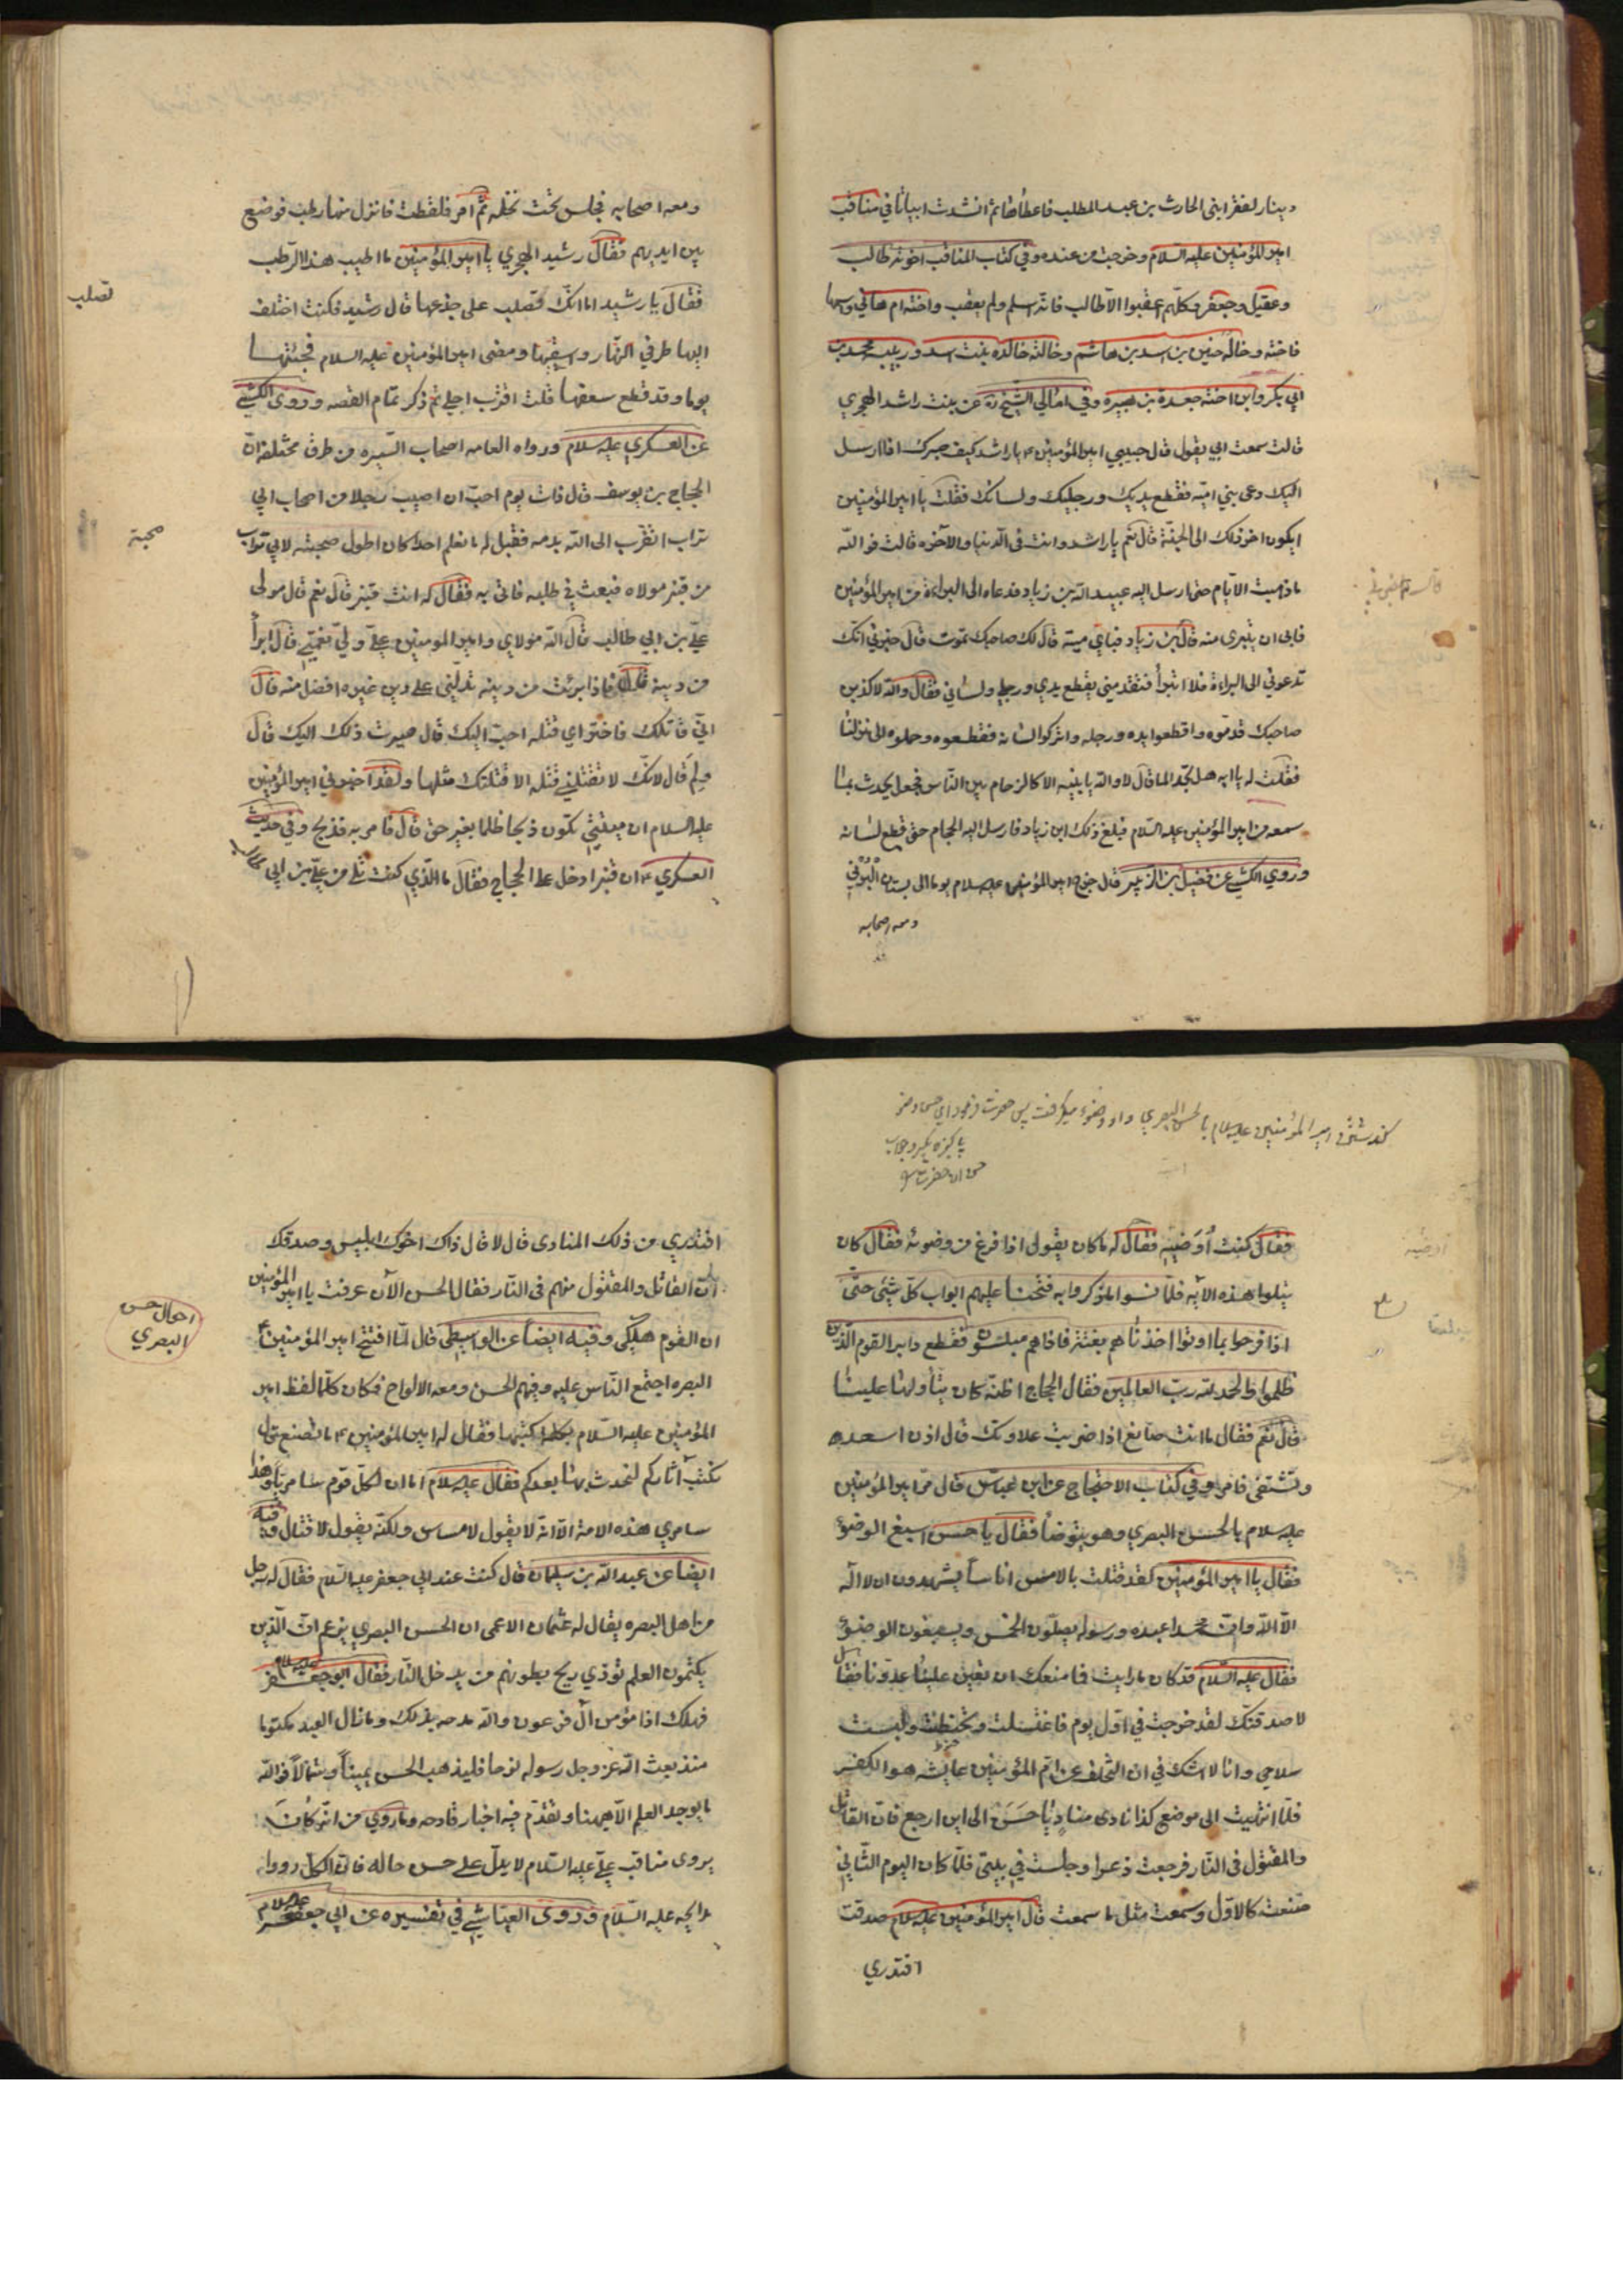 دينار لفقرا بني الحارث بن عبد المطلب فاعطاها ثم انشدت ابياتا في مناقب
امير المؤمنين عليه السلام وخرجت من عنده وفي كتاب المناقب اخوته طالب
وعقيل وجعفر وكلهم اعقبوا الا طالب فانه اسلم ولم يعقب واخته ام هاني واسمها
فاخته وخاله حنين بن اسد بن هاشم وخالته خالده بنت اسد وربيبه محمد بن
ابي بكر وابن اخته جعدة بن هبيرة وفي امالي الشيخ ره عن بنت راشد الهجري
قالت سمعت ابي يقول قال حبيبي امير المؤمنين ع يا راشد كيف صبرك اذا ارسل
اليك دعي بني اميه فقطع يديك ورجليك ولسانك فقلت يا امير المؤمنين
ايكون اخر ذلك الى الجنة قال نعم يا راشد وانت في الدنيا والآخره قالت فوالله
ما ذهبت الايام حتى ارسل اليه عبيد الله بن زياد فدعاه الى البراءة من امير المؤمنين
فابى ان يتبرى منه قال بن زياد فباي ميتة قال لك صاحبك تموت قال خبرني انك
تدعوني الى البراءة فلا اتبرأ فتقدمني بقطع يدي ورجلي ولساني فقال والله لاكذبن
صاحبك قدموه واقطعوا يده ورجله واتركوا لسانه فقطعوه وحملوه الى منزلنا
فقلت له يا ابه هل تجد الما قال لا والله يا بنيه الا كالزحام بين الناس فجعل يحدث بما
سمعه من امير المؤمنين عليه السلام فبلغ ذلك ابن زياد فارسل اليه الحجام حتى قطع لسانه
وروى الكشي عن فضيل بن الزبير قال خرج امير المؤمنين عليه السلام يوما الى بستان البرني
ومعه اصحابه
ومعه اصحابه فجلس تحت نخلة ثم امر فلقطت فانزل منها رطب فوضع
بين ايديهم فقال رشيد الهجري يا امير المؤمنين ما اطيب هذا الرطب
فقال يا رشيد اما انك تصلب على جذعها قال رشيد فكنت اختلف
اليها طرفي النهار واسقيها ومضى امير المؤمنين عليه السلام فجئتها
يوما وقد قطع سعفها قلت اقترب اجلي ثم ذكر تمام القصه وروى الكشي
عن العسكري عليه السلام ورواه العامه اصحاب السيره من طرق مختلفة ان
الحجاج بن يوسف قال ذات يوم احب ان اصيب رجلا من اصحاب ابي
تراب اتقرب الى الله بدمه فقيل له ما نعلم احدا كان اطول صحبة لابي تراب
من قنبر مولاه فبعث في طلبه فاتي به فقال له انت قنبر قال نعم قال مولى
علي بن ابي طالب قال الله مولاي وامير المومنين علي ولي نعمتي قال ابرأ
من دينه قال فاذا برئت من دينه تدلني على دين غيره افضل منه قال
اني قاتلك فاختر اي قتله احب اليك قال صيرت ذلك اليك قال
ولم قال لانك لا تقتلني قتله الا قتلتك مثلها ولقد اخبرني امير المؤمنين
عليه السلام ان منيتي تكون ذبحا ظلما بغير حق قال فامر به فذبح وفي حديث
العسكري ع ان قنبرا دخل على الحجاج فقال ما الذي كنت تلي من علي بن ابي طالب
تصلب
محبة
امير المؤمنين عليه السلام
فقال كنت أوضيه فقال له ما كان يقول اذا فرغ من وضوئه فقال كان
يتلو هذه الايه فلما نسوا ما ذكروا به فتحنا عليهم ابواب كل شيئ حتى
اذا فرحوا بما اوتوا اخذناهم بغتة فاذا هم مبلسون فقطع دابر القوم الذين
ظلموا والحمد لله رب العالمين فقال الحجاج اظنه كان يتأولها علينا
قال نعم فقال ما انت صانع اذا ضربت علاوتك قال اذن اسعد
وتشقى فامر به وفي كتاب الاحتجاج عن ابن عباس قال مر امير المؤمنين
عليه سلام بالحسن البصري وهو يتوضأ فقال يا حسن اسبغ الوضوء
فقال يا امير المؤمنين لقد قتلت بالامس اناسا يشهدون ان لا اله
الا الله وان محمدا عبده ورسوله يصلون الخمس ويسبغون الوضوء
فقال عليه السلام قد كان ما رايت فما منعك ان تعين علينا عدونا فقال
لاصدقنك لقد خرجت في اول يوم فاغتسلت وتحنطت ولبست
سلاحي وانا لا اشك في ان التخلف عن ام المؤمنين عايشه هو الكفر
فلما انتهيت الى موضع كذا نادى مناد يا حسن الى اين ارجع فان القاتل
والمقتول في النار فرجعت ذعرا وجلست في بيتي فلما كان اليوم الثاني
صنعت كالاول وسمعت مثل ما سمعت قال امير المؤمنين عليه سلام صدقت
افتدري
افتدري من ذلك المنادى قال لا قال ذاك اخوك ابليس وصدقك
ان القاتل والمقتول منهم في النار فقال الحسن الآن عرفت يا امير المؤمنين
ان القوم هلكى وفيه ايضا عن الواسطي قال لما افتتح امير المؤمنين ع
البصره اجتمع الناس عليه وفيهم الحسن ومعه الالواح فكان كلما لفظ امير
المؤمنين عليه السلام بكلمة كتبها فقال له امير المؤمنين ع ما تصنع قال
نكتب آثاركم لنحدث بها بعدكم فقال عليه سلام اما ان لكل قوم سامريا وهذا
سامري هذه الامة الا انه لا يقول لا مساس ولكنه يقول لا قتال وفيه
ايضا عن عبد الله بن سليمان قال كنت عند ابي جعفر عليه السلام فقال له رجل
من اهل البصره يقال له عثمان الاعمى ان الحسن البصري يزعم ان الذين
يكتمون العلم تؤذي ريح بطونهم من يدخل النار فقال ابو جعفر عليه سلام
فهلك اذا مؤمن آل فرعون والله مدحه بذلك وما زال العلم مكتوما
منذ بعث الله عز وجل رسوله نوحا فليذهب الحسن يمينا وشمالا فوالله
ما يوجد العلم الا ههنا وتقدم فيه اخبار قادحه وما روي من انه كان
يروى مناقب علي عليه السلام لا يدل على حسن حاله فان الكل رووا
مدايحه عليه السلام وروى العياشي في تفسيره عن ابي جعفر عليه سلام
احوال حسن
البصري